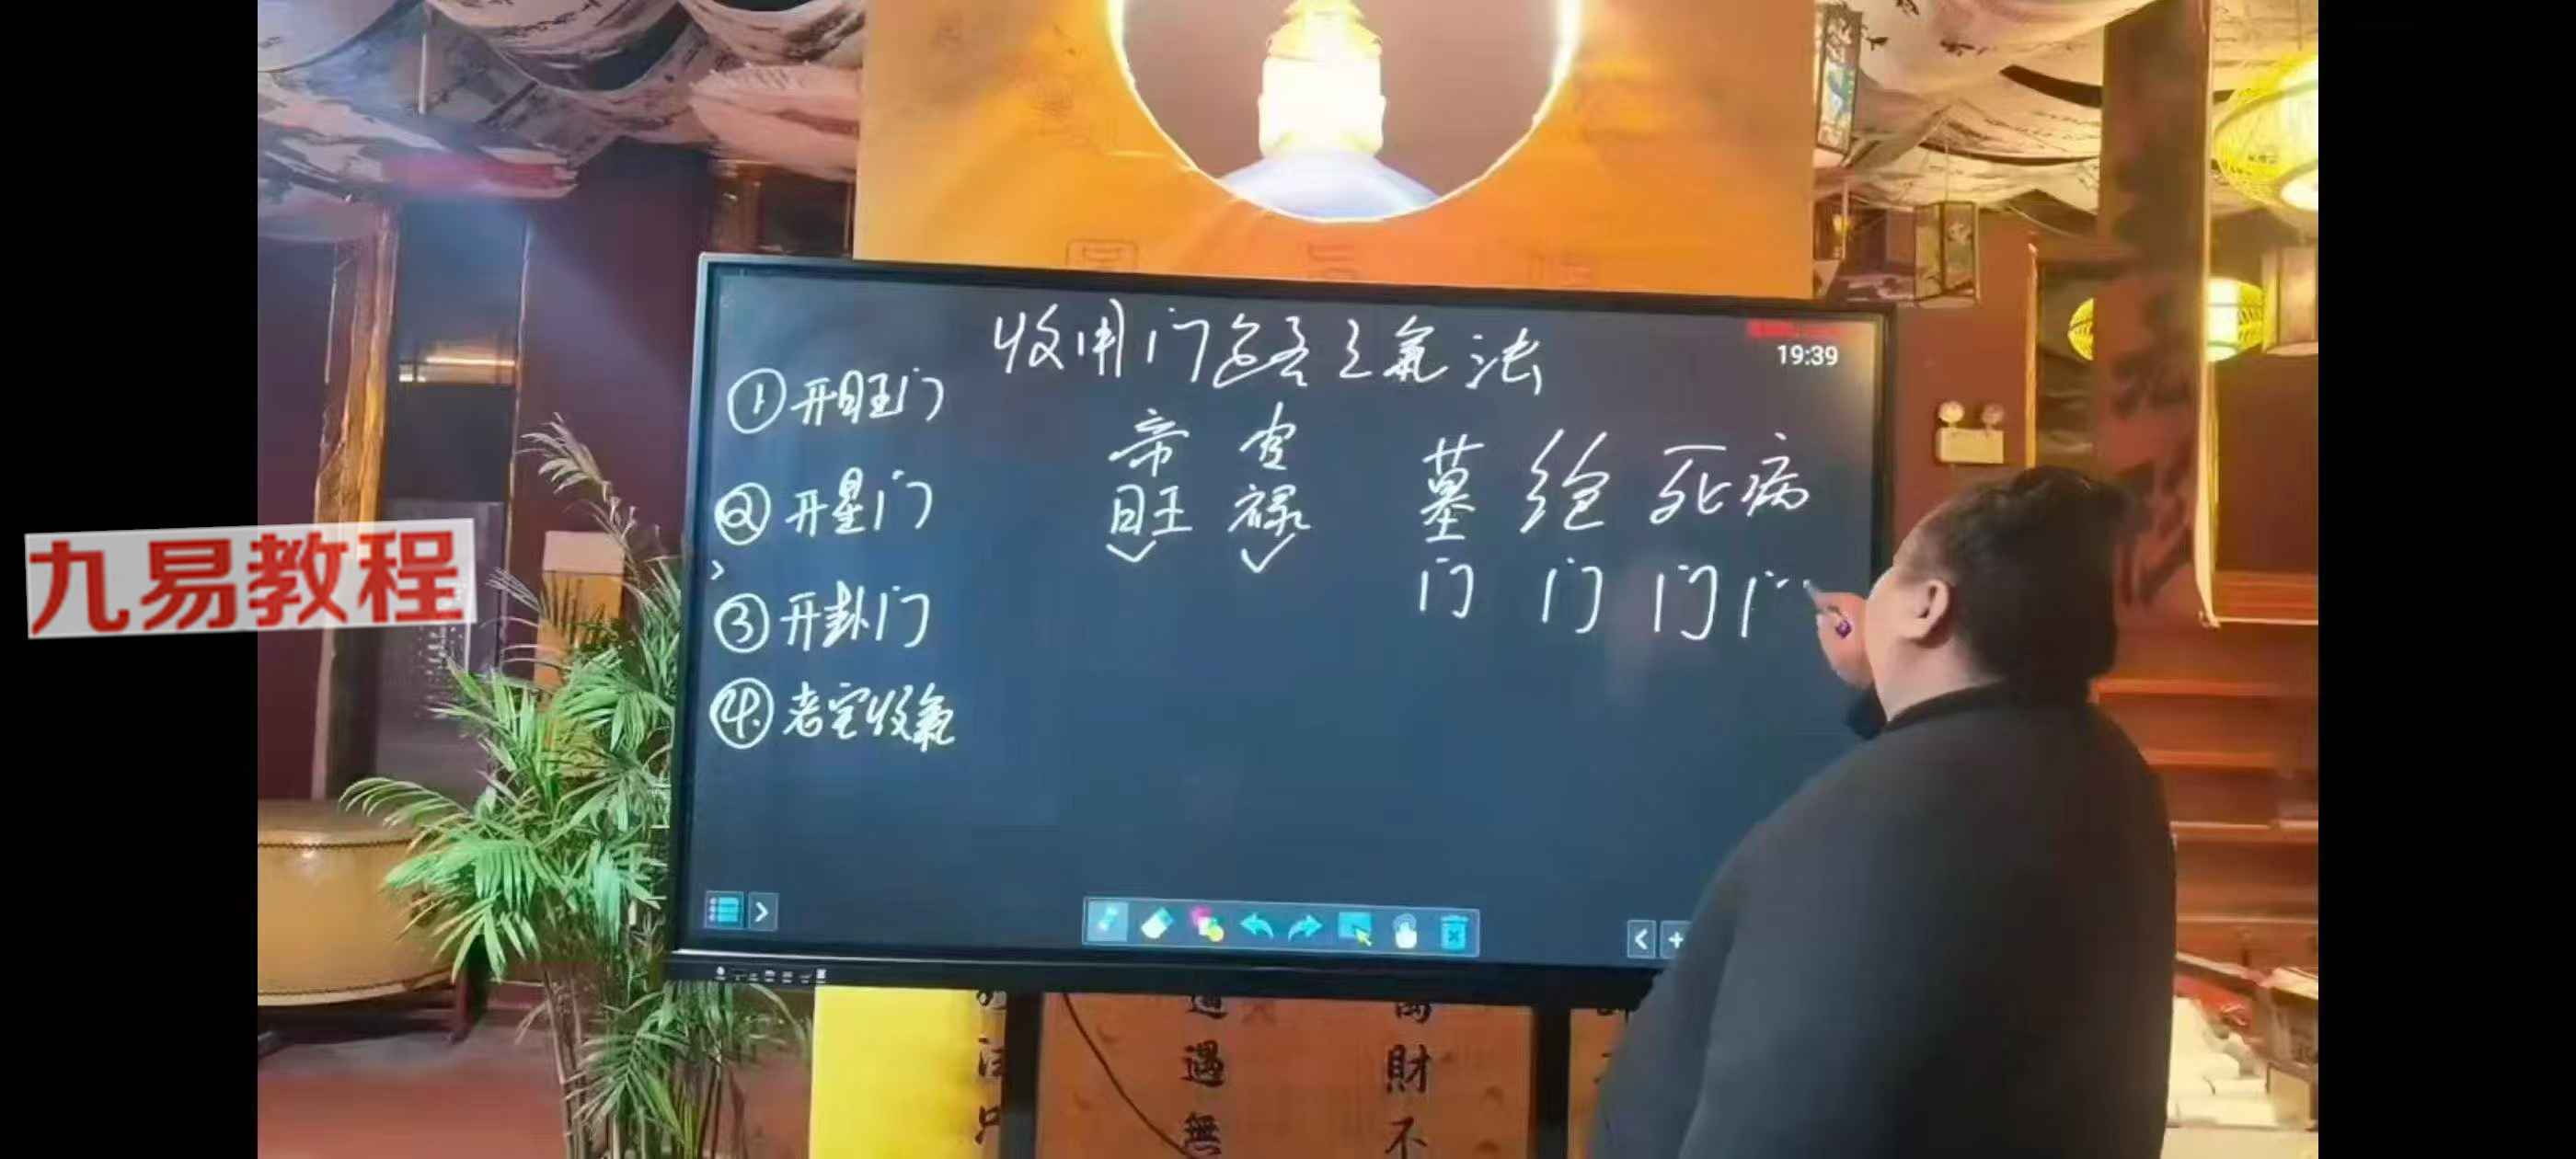 收用门路之氣法
19:39
① 开旺门
② 开星门
③ 开卦门
④ 老宅收氣
帝旺
官禄
墓 绝 死 病
门 门 门 门
九易教程
遇無
萬財不